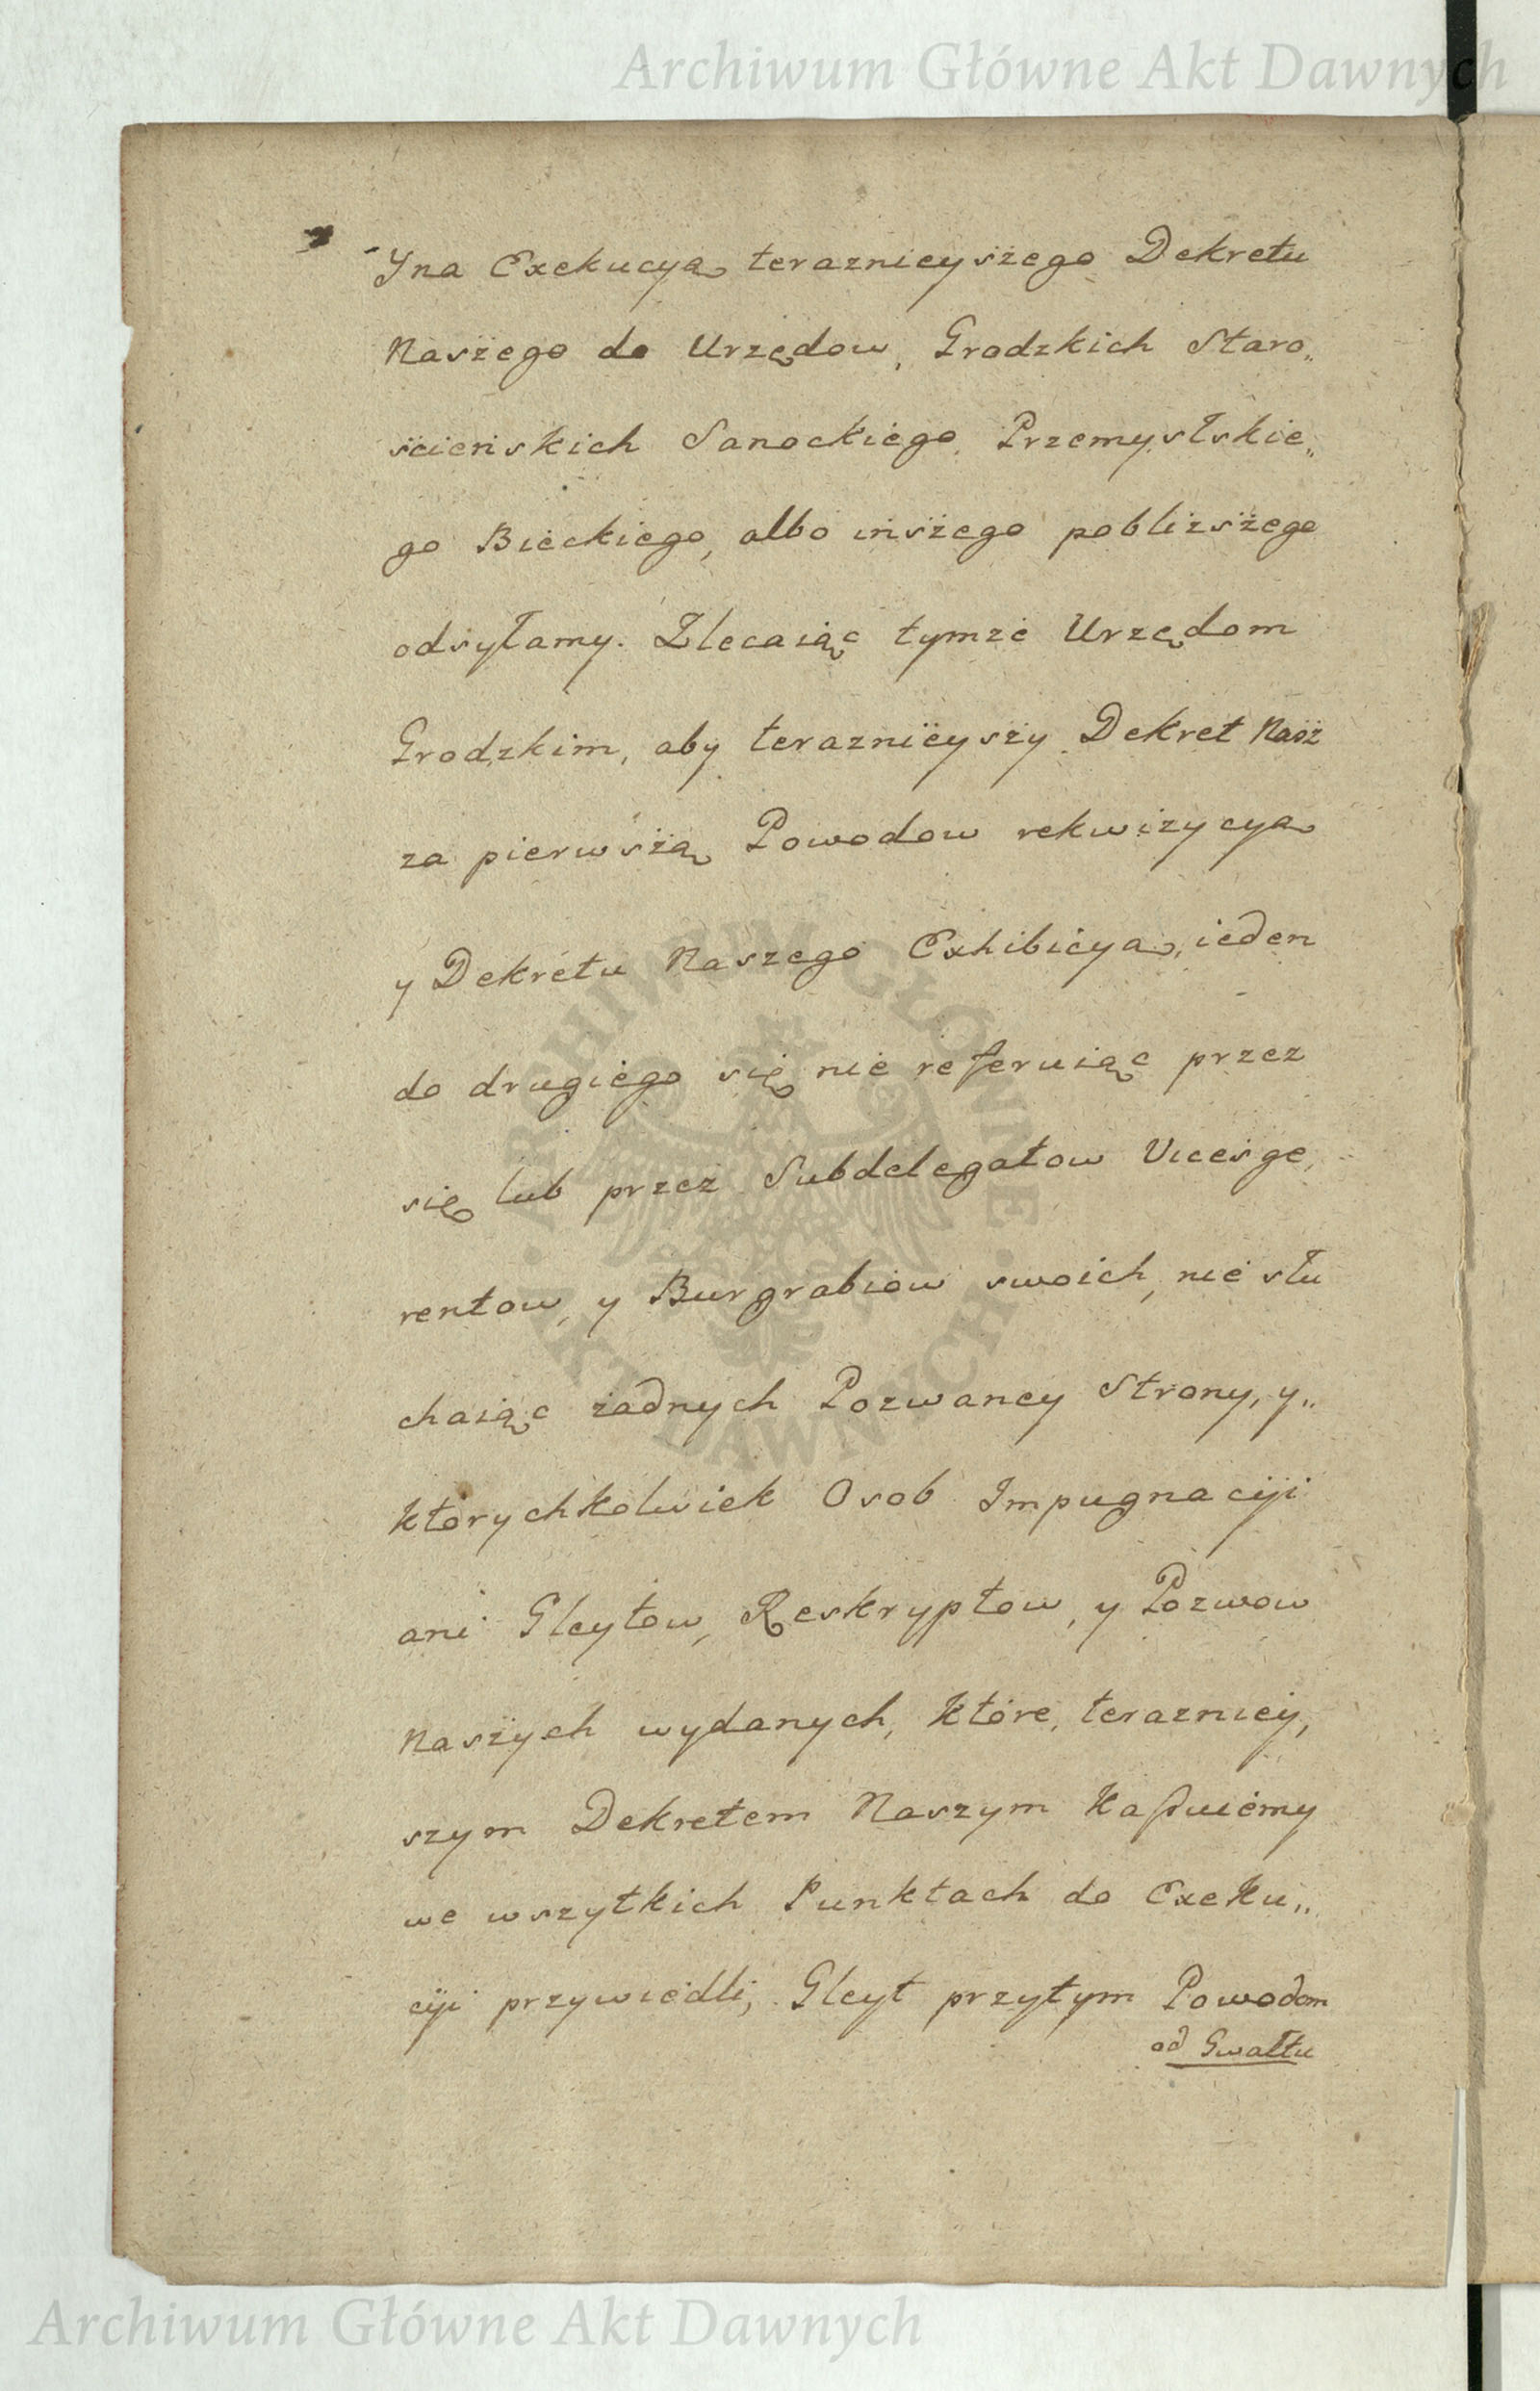 Archiwum Główne Akt Dawnych
Y na Exekucyą teraznieyszego Dekretu
Naszego do Urzędow, Grodzkich Staro„
ścieńskich Sanockiego, Przemysłskie„
go Bieckiego, albo inszego pobliższego
odsyłamy. Zlecaiąc tymże Urzędom
Grodzkim, aby teraznieyszy Dekret Nasz
za pierwszą Powodow rekwizycyą
y Dekretu Naszego Exhibicyą, ieden
do drugiego się nie referuiąc przez
się lub przez Subdelegatow Vicesge,
rentow, y Burgrabiow swoich, nie słu
chaiąc żadnych Pozwaney Strony, y„
ktorychkolwiek Osob Impugnacyi
ani Gleytow, Reskryptow, y Pozwow
Naszych wydanych, które, terazniey,
szym Dekretem Naszym Kaſsuiemy
we wszytkich Punktach do Exeku„
cyi przywiedli, Gleyt przytym Powodom
od Gwałtu
ARCHIWUM GŁÓWNE
AKT DAWNYCH
Archiwum Główne Akt Dawnych